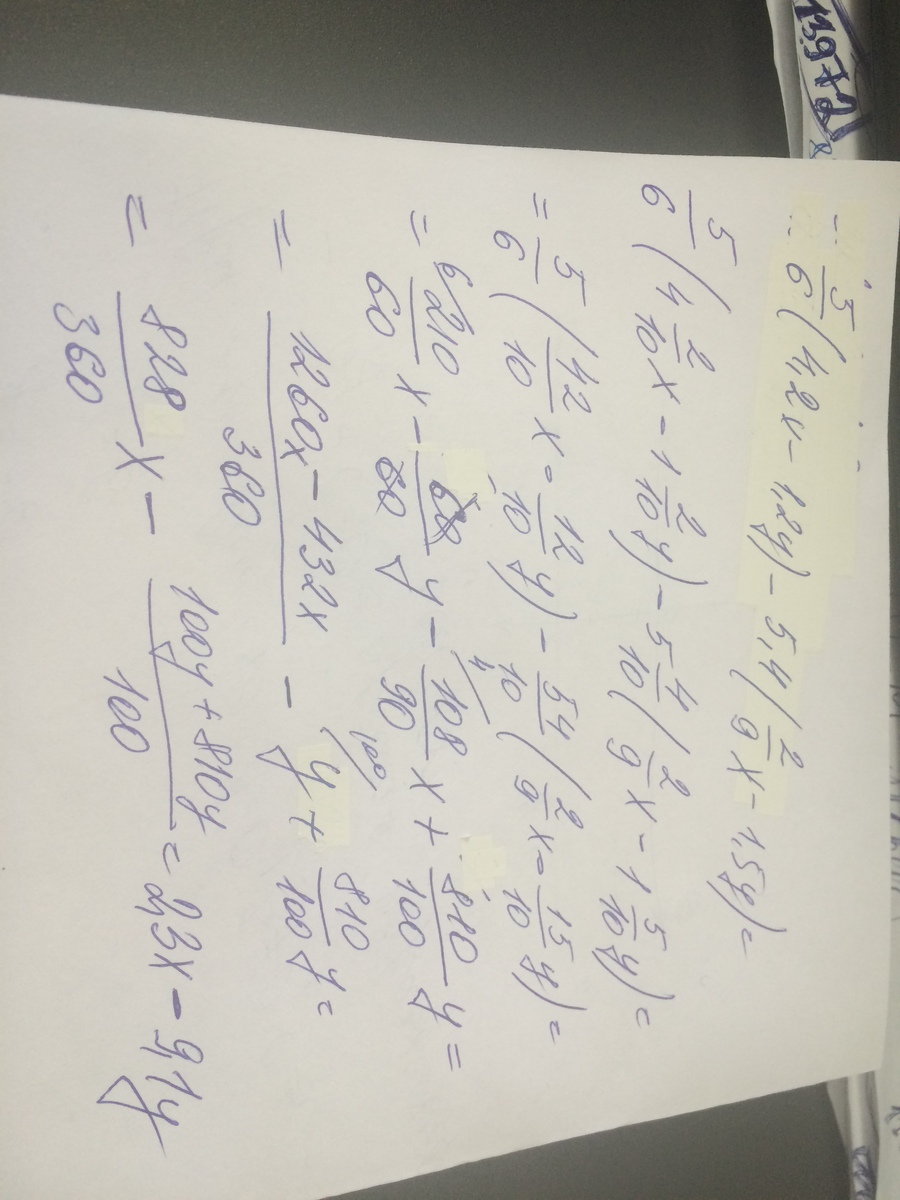 13972
5/6 (4,2x - 1,2y) - 5,4 (2/9 x - 1,5y) =
5/6 (4 2/10 x - 1 2/10 y) - 5 4/10 (2/9 x - 1 5/10 y) =
= 5/6 (42/10 x - 12/10 y) - 54/10 (2/9 x - 15/10 y) =
= 210/60 x - 60/60 y - 108/90 x + 810/100 y =
= 1260x - 432x / 360 - y + 810/100 y =
= 828/360 x - 100y + 810y / 100 = 2,3x - 9,1y